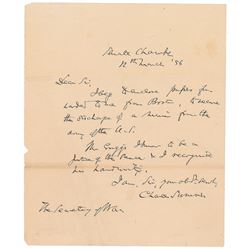 Senate Chamber
12th March '56
Dear Sir,
I beg to enclose papers for-
warded to me from Boston, to secure
the discharge of a minor from the
army of the U.S.
Mr. I know to be a
Justice of the Peace & I recognise
his handwriting.
I am, Sir, your obt servt,
Charles Sumner
The Secretary of War